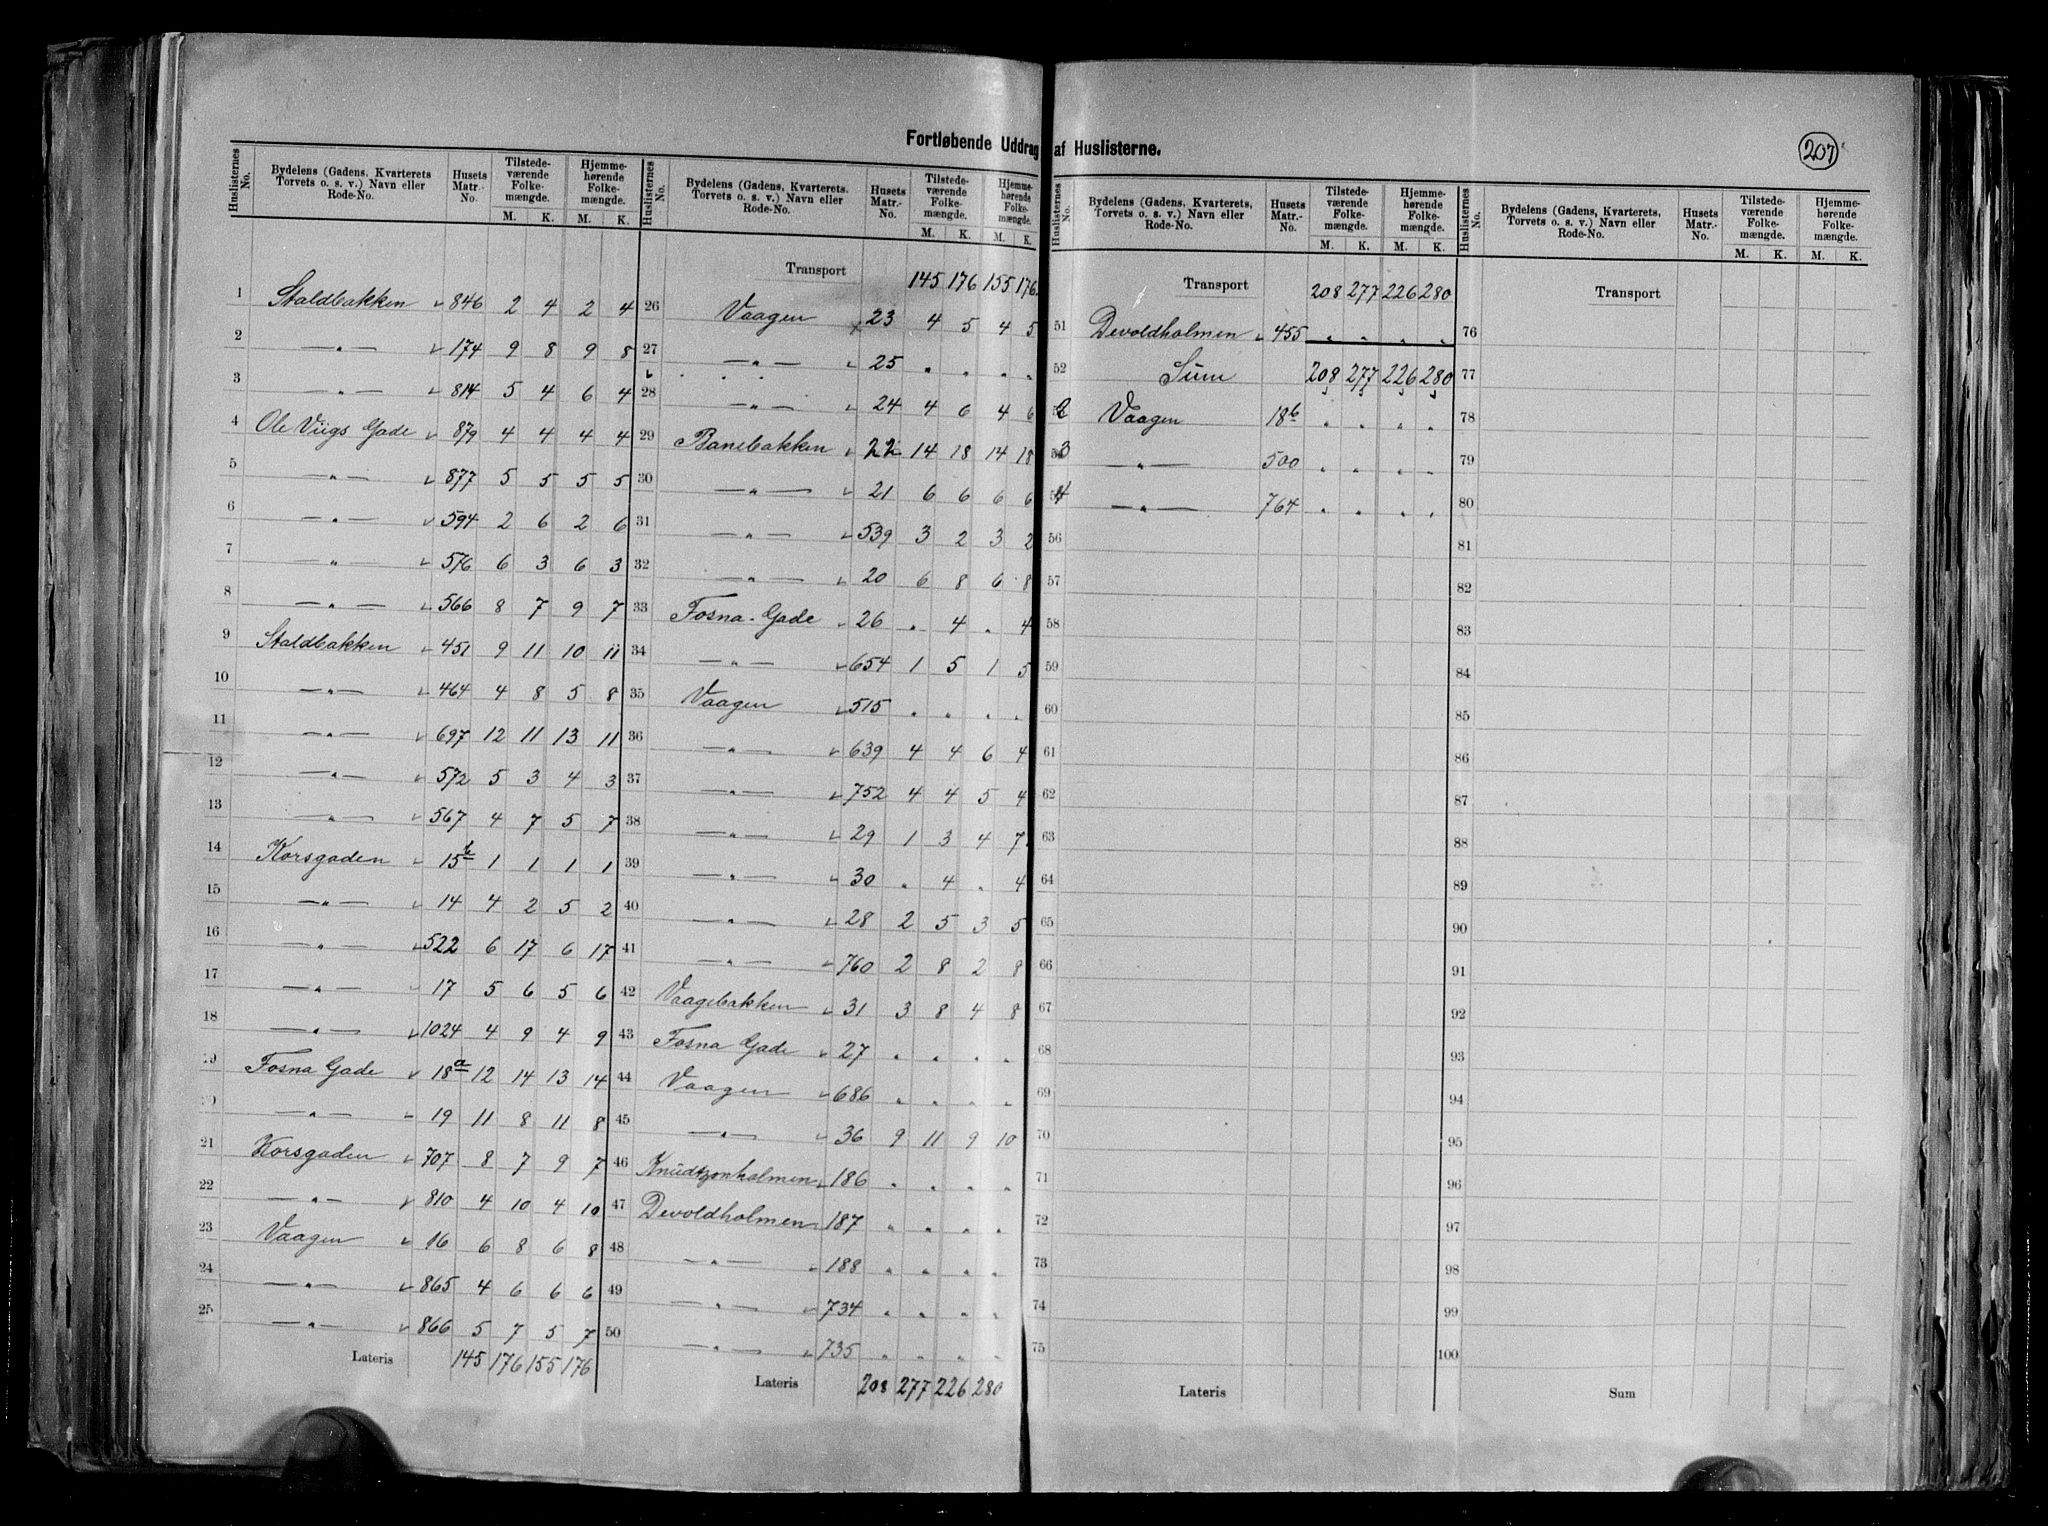 Fortløbende Uddrag af Huslisterne.
207
Huslisternes No. Bydelens (Gadens, Kvarterets Torvets o. s. v.) Navn eller Rode-No. Husets Matr.-No. Tilstedeværende Folkemængde. M. K. Hjemmehørende Folkemængde. M. K.
1 Staldbakken 846 2 4 2 4
2 —„— 174 9 8 9 8
3 —„— 814 5 4 6 4
4 Ole Viigs Gade 879 4 4 4 4
5 —„— 877 5 5 5 5
6 —„— 594 2 6 2 6
7 —„— 576 6 3 6 3
8 —„— 566 8 7 9 7
9 Staldbakken 451 9 11 10 11
10 —„— 464 4 8 5 8
11 —„— 697 12 11 13 11
12 —„— 572 5 3 4 3
13 —„— 567 4 7 5 7
14 Korsgaden 15b 1 1 1 1
15 —„— 14 4 2 5 2
16 —„— 522 6 17 6 17
17 —„— 17 5 6 5 6
18 —„— 1024 4 9 4 9
19 Fosna Gade 18a 12 14 13 14
20 —„— 19 11 8 11 8
21 Korsgaden 707 8 7 9 7
22 —„— 810 4 10 4 10
23 Vaagen 16 6 8 6 8
24 —„— 865 4 6 6 6
25 —„— 866 5 7 5 7
Lateris 145 176 155 176
Huslisternes No. Bydelens (Gadens, Kvarterets, Torvets o. s. v.) Navn eller Rode-No. Husets Matr.-No. Tilstedeværende Folkemængde. M. K. Hjemmehørende Folkemængde. M. K.
Transport 145 176 155 176
26 Vaagen 23 4 5 4 5
27 —„— 25 „ „ „ „
28 —„— 24 4 6 4 6
29 Banebakken 22 14 18 14 18
30 —„— 21 6 6 6 6
31 —„— 539 3 2 3 2
32 —„— 20 6 8 6 8
33 Fosna-Gade 26 „ 4 „ 4
34 —„— 654 1 5 1 5
35 Vaagen 515 „ „ „ „
36 —„— 639 4 4 6 4
37 —„— 752 4 4 5 4
38 —„— 29 1 3 4 7
39 —„— 30 „ 4 „ 4
40 —„— 28 2 5 3 5
41 —„— 760 2 8 2 8
42 Vaagebakken 31 3 8 4 8
43 Fosna Gade 27 „ „ „ „
44 Vaagen 686 „ „ „ „
45 —„— 36 9 11 9 10
46 Knudtzonholmen 186 „ „ „ „
47 Devoldholmen 187 „ „ „ „
48 —„— 188 „ „ „ „
49 —„— 734 „ „ „ „
50 —„— 735 „ „ „ „
Lateris 208 277 226 280
Huslisternes No. Bydelens (Gadens, Kvarterets, Torvets o. s. v.) Navn eller Rode-No. Husets Matr.-No. Tilstedeværende Folkemængde. M. K. Hjemmehørende Folkemængde. M. K.
Transport 208 277 226 280
51 Devoldholmen 455 „ „ „ „
52 Sum 208 277 226 280
52 Vaagen 18b „ „ „ „
53 —„— 500 „ „ „ „
54 —„— 764 „ „ „ „
56
57
58
59
60
61
62
63
64
65
66
67
68
69
70
71
72
73
74
75
Lateris
Huslisternes No. Bydelens (Gadens, Kvarterets, Torvets o. s. v.) Navn eller Rode-No. Husets Matr.-No. Tilstedeværende Folkemængde. M. K. Hjemmehørende Folkemængde. M. K.
Transport
76
77
78
79
80
81
82
83
84
85
86
87
88
89
90
91
92
93
94
95
96
97
98
99
100
Sum